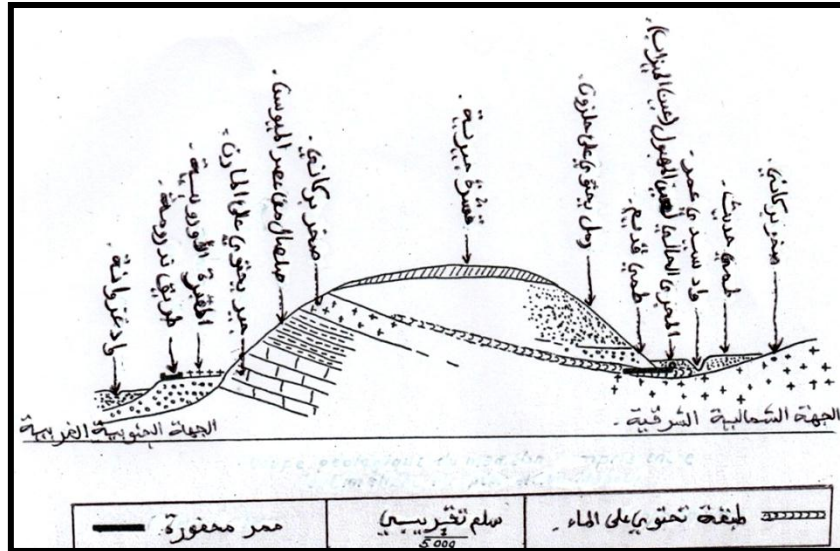 صخر بركاني.
طمي حديث.
واد سيدي عمر.
المجرى الحالي لعين المهبول (عين الميزاب).
طمي قديم.
رمل يحتوي على حلزون.
قشرة جيرية.
صخر بركاني.
صلصال من عصر الميوسن.
جير يحتوي على المارن.
المقبرة الأوروبية
طريق ندرومة.
واد غزوانة.
الجهة الشمالية الشرقية.
الجهة الجنوبية الغربية
طبقة تحتوي على الماء.
سلم تقريبي
1
5000
ممر محفورة.